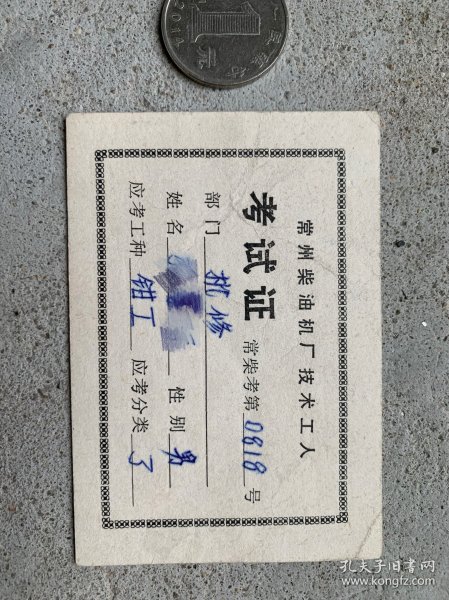 常州柴油机厂技术工人
考试证 常柴考第0818号
部门 机修
姓名 性别 男
应考工种 钳工 应考分类
1元
孔夫子旧书网
www.kongfz.com